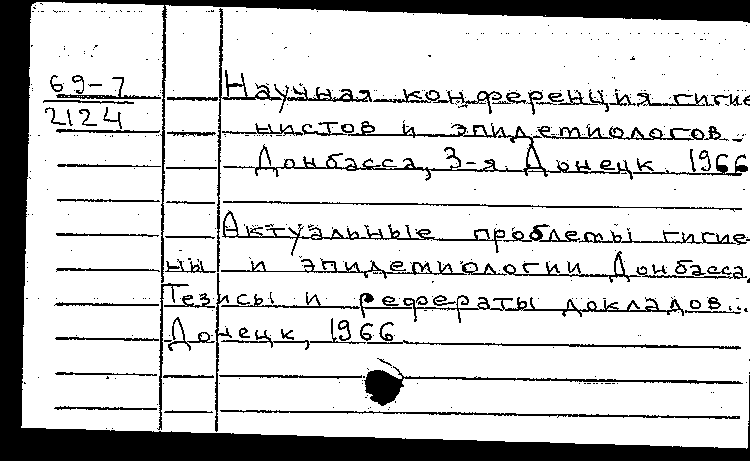 69-7
2124
Научная конференция гигие
нистов и эпидемиологов
Донбасса, 3-я. Донецк. 1966
Актуальные проблемы гигие-
ны и эпидемиологии Донбасса.
Тезисы и рефераты докладов...
Донецк, 1966.